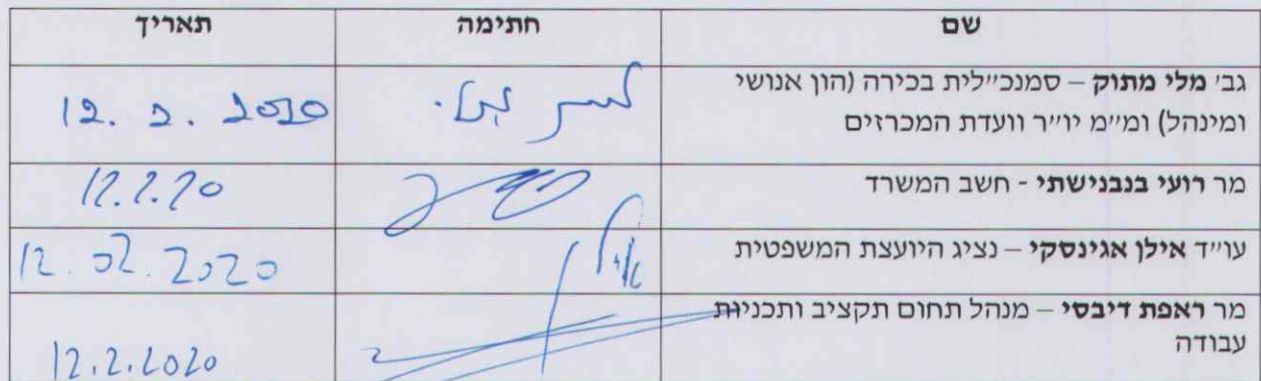 שם חתימה תאריך
גב׳ מלי מתוק – סמנכ״לית בכירה (הון אנושי
ומינהל) ומ״מ יו״ר וועדת המכרזים
12. 2. 2020
מר רועי בנבנישתי - חשב המשרד
12.2.20
עו״ד אילן אגינסקי – נציג היועצת המשפטית
12.02.2020
מר ראפת דיבסי – מנהל תחום תקציב ותכניות
עבודה
12.2.2020